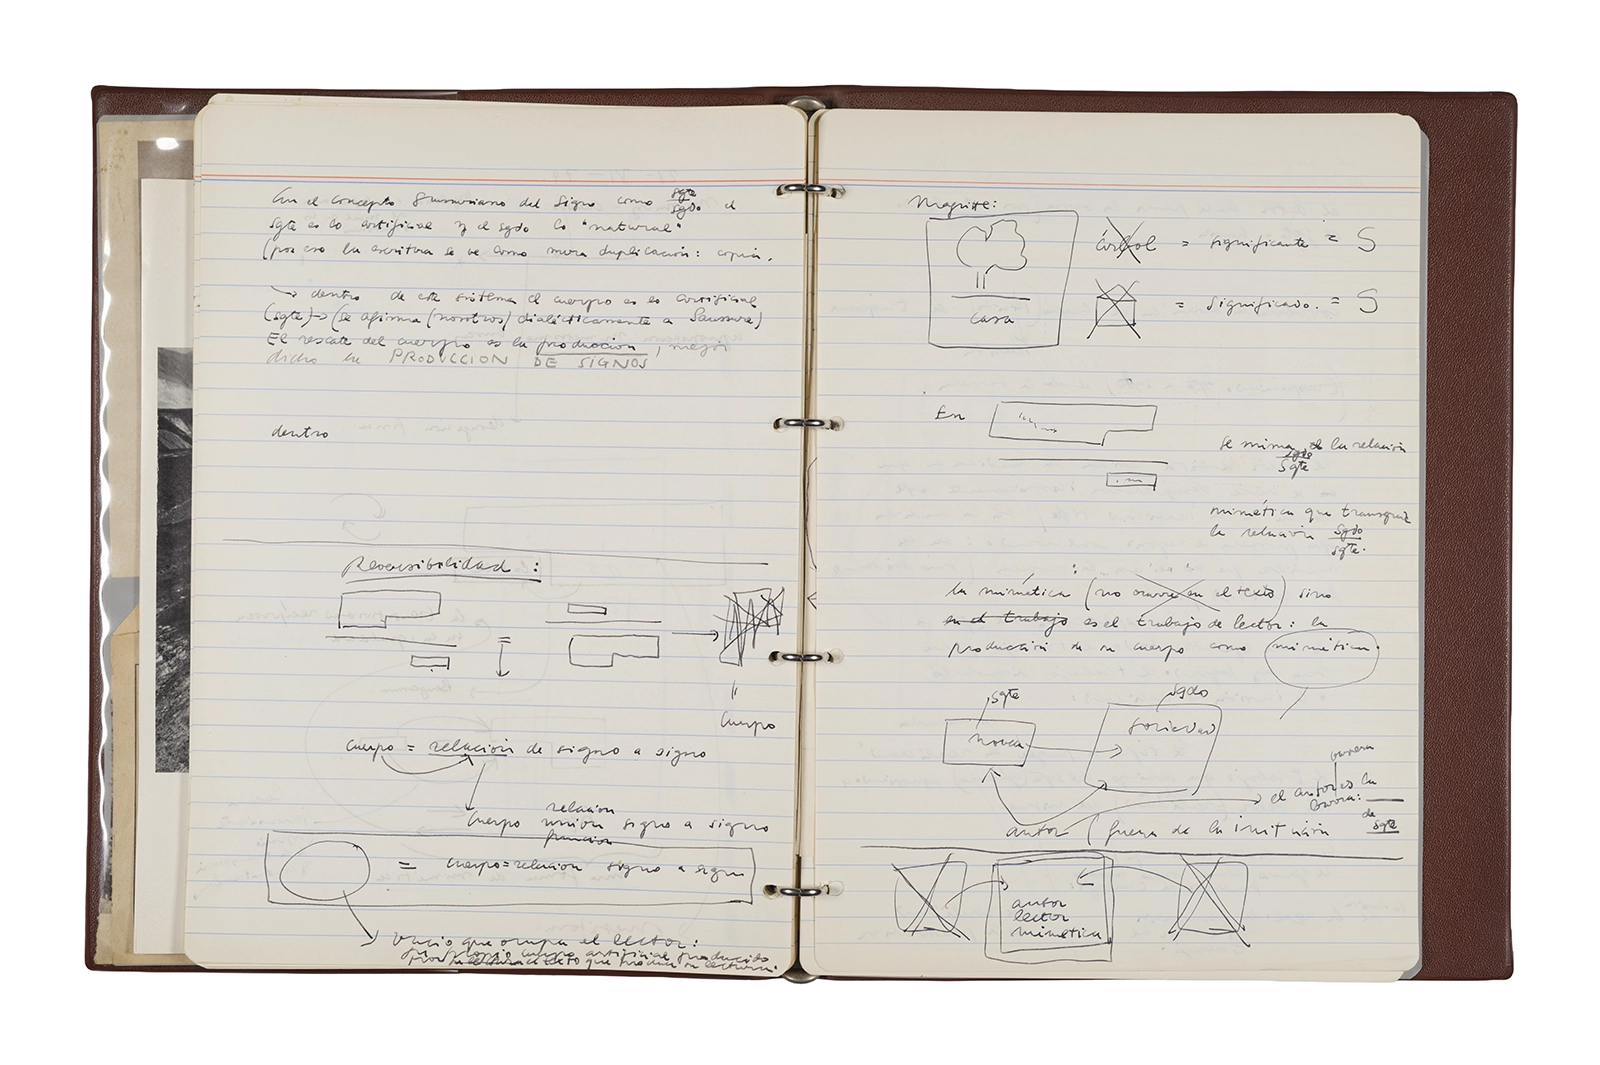 En el concepto Saussuriano del signo como sgte/sgdo el
sgte es lo artificial y el sgdo lo "natural"
(por eso la escritura se ve como mera duplicación: copia.
→ dentro de este sistema el cuerpo es lo artificial
(sgte) → (se afirma (nosotros) dialécticamente a Saussure)
El rescate del cuerpo es la producción, mejor
dicho la PRODUCCION DE SIGNOS
dentro
Reversibilidad:
=
=
cuerpo
cuerpo = relación de signo a signo
relacion
cuerpo union signo a signo
funcion
= cuerpo = relacion signo a signo
vacio que ocupa el lector:
cuerpo artificial producido
que produce su lectura.
Magritte:
casa
árbol = significante = S
= significado. = S
En
se mima la relación
sgdo
sgte
mimética que transgrede
la relación sgdo
sgte.
la mimética (no ocurre en el texto) sino
en el trabajo es el trabajo de lector: la
producción de su cuerpo como mimética.
sgte
sgdo
novela
sociedad
el autor es la
de sgte
autor (fuera de la
autor
lector
mimetica